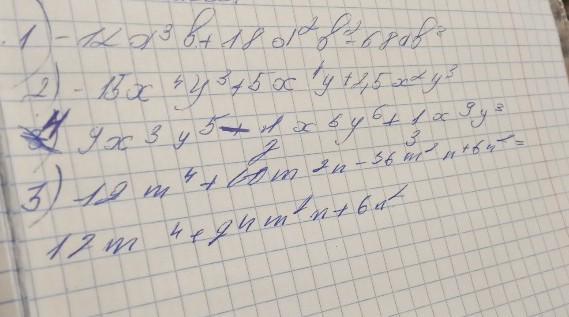 1) -12a³b+18a²b²-68ab³
2) -15x⁴y³+5x⁴y+2,5x²y³
4 9x³y⁵-½x⁵y⁶+1x⁹y³
3) -12m⁴+60m²n-36m²n+6n²=
12m⁴+24m²n+6n²